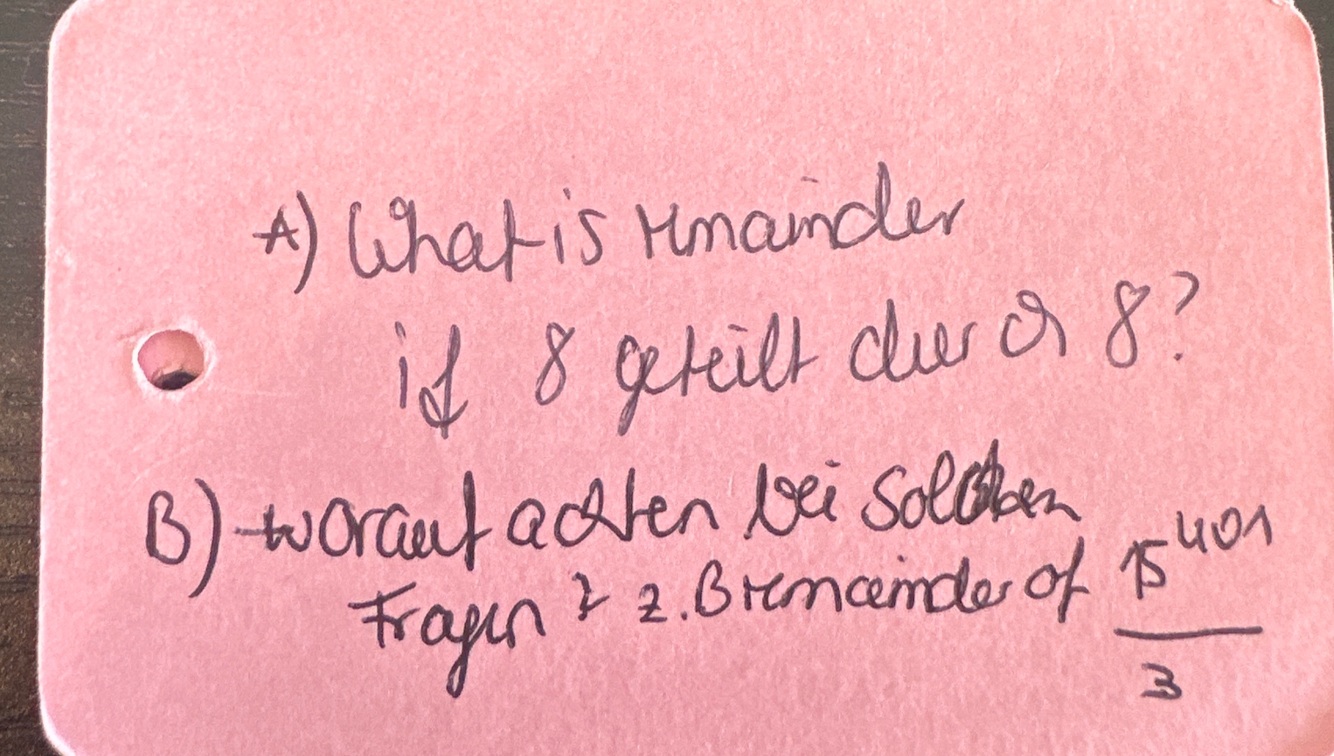 A) What is remainder
if 8 geteilt durch 8?
B) worauf achten bei solchen
Fragen? z.B remainder of 15⁴⁰¹
3